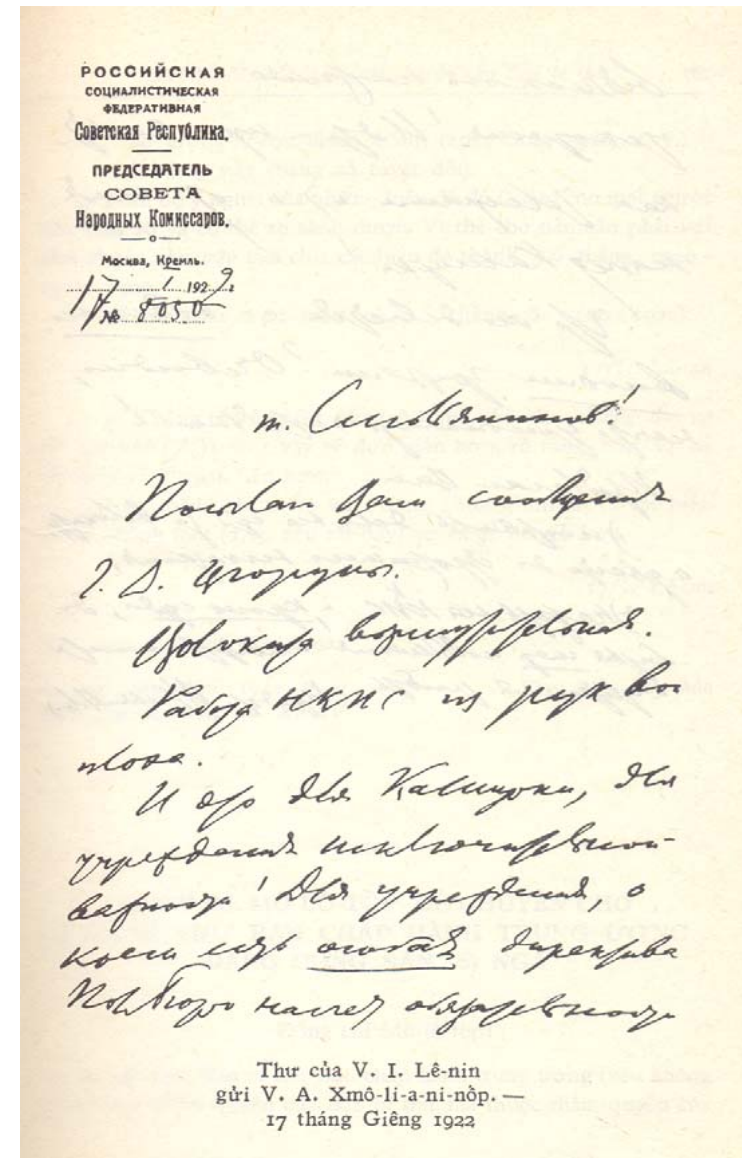 РОССИЙСКАЯ
СОЦИАЛИСТИЧЕСКАЯ
ФЕДЕРАТИВНАЯ
Советская Республика.
ПРЕДСЕДАТЕЛЬ
СОВЕТА
Народных Комиссаров.
Москва, Кремль.
17 I 1922 г.
№ 8050
т. Смольянинов!
Вам сообщение
Г. Д. Цюрупы.
Волокита возмутительная.
Работа НКПС из рук вон
плоха.
И это для Каширки, для
учреждения исключительной
важности! Для учреждения, о
коем есть особая директива
насчет обязательности
Thư của V. I. Lê-nin
gửi V. A. Xmô-li-a-ni-nốp. —
17 tháng Giêng 1922